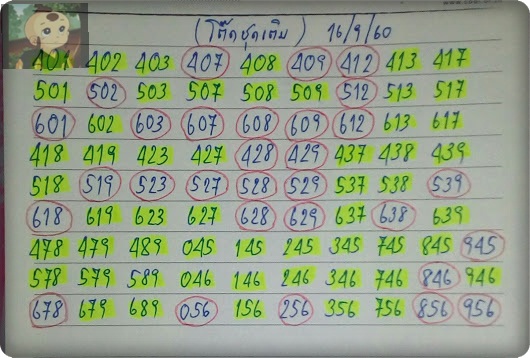 (โต๊ดชุดเดิม) 16/9/60
401 402 403 407 408 409 412 413 417
501 502 503 507 508 509 512 513 517
601 602 603 607 608 609 612 613 617
418 419 423 427 428 429 437 438 439
518 519 523 527 528 529 537 538 539
618 619 623 627 628 629 637 638 639
478 479 489 045 145 245 345 745 845 945
578 579 589 046 146 246 346 746 846 946
678 679 689 056 156 256 356 756 856 956